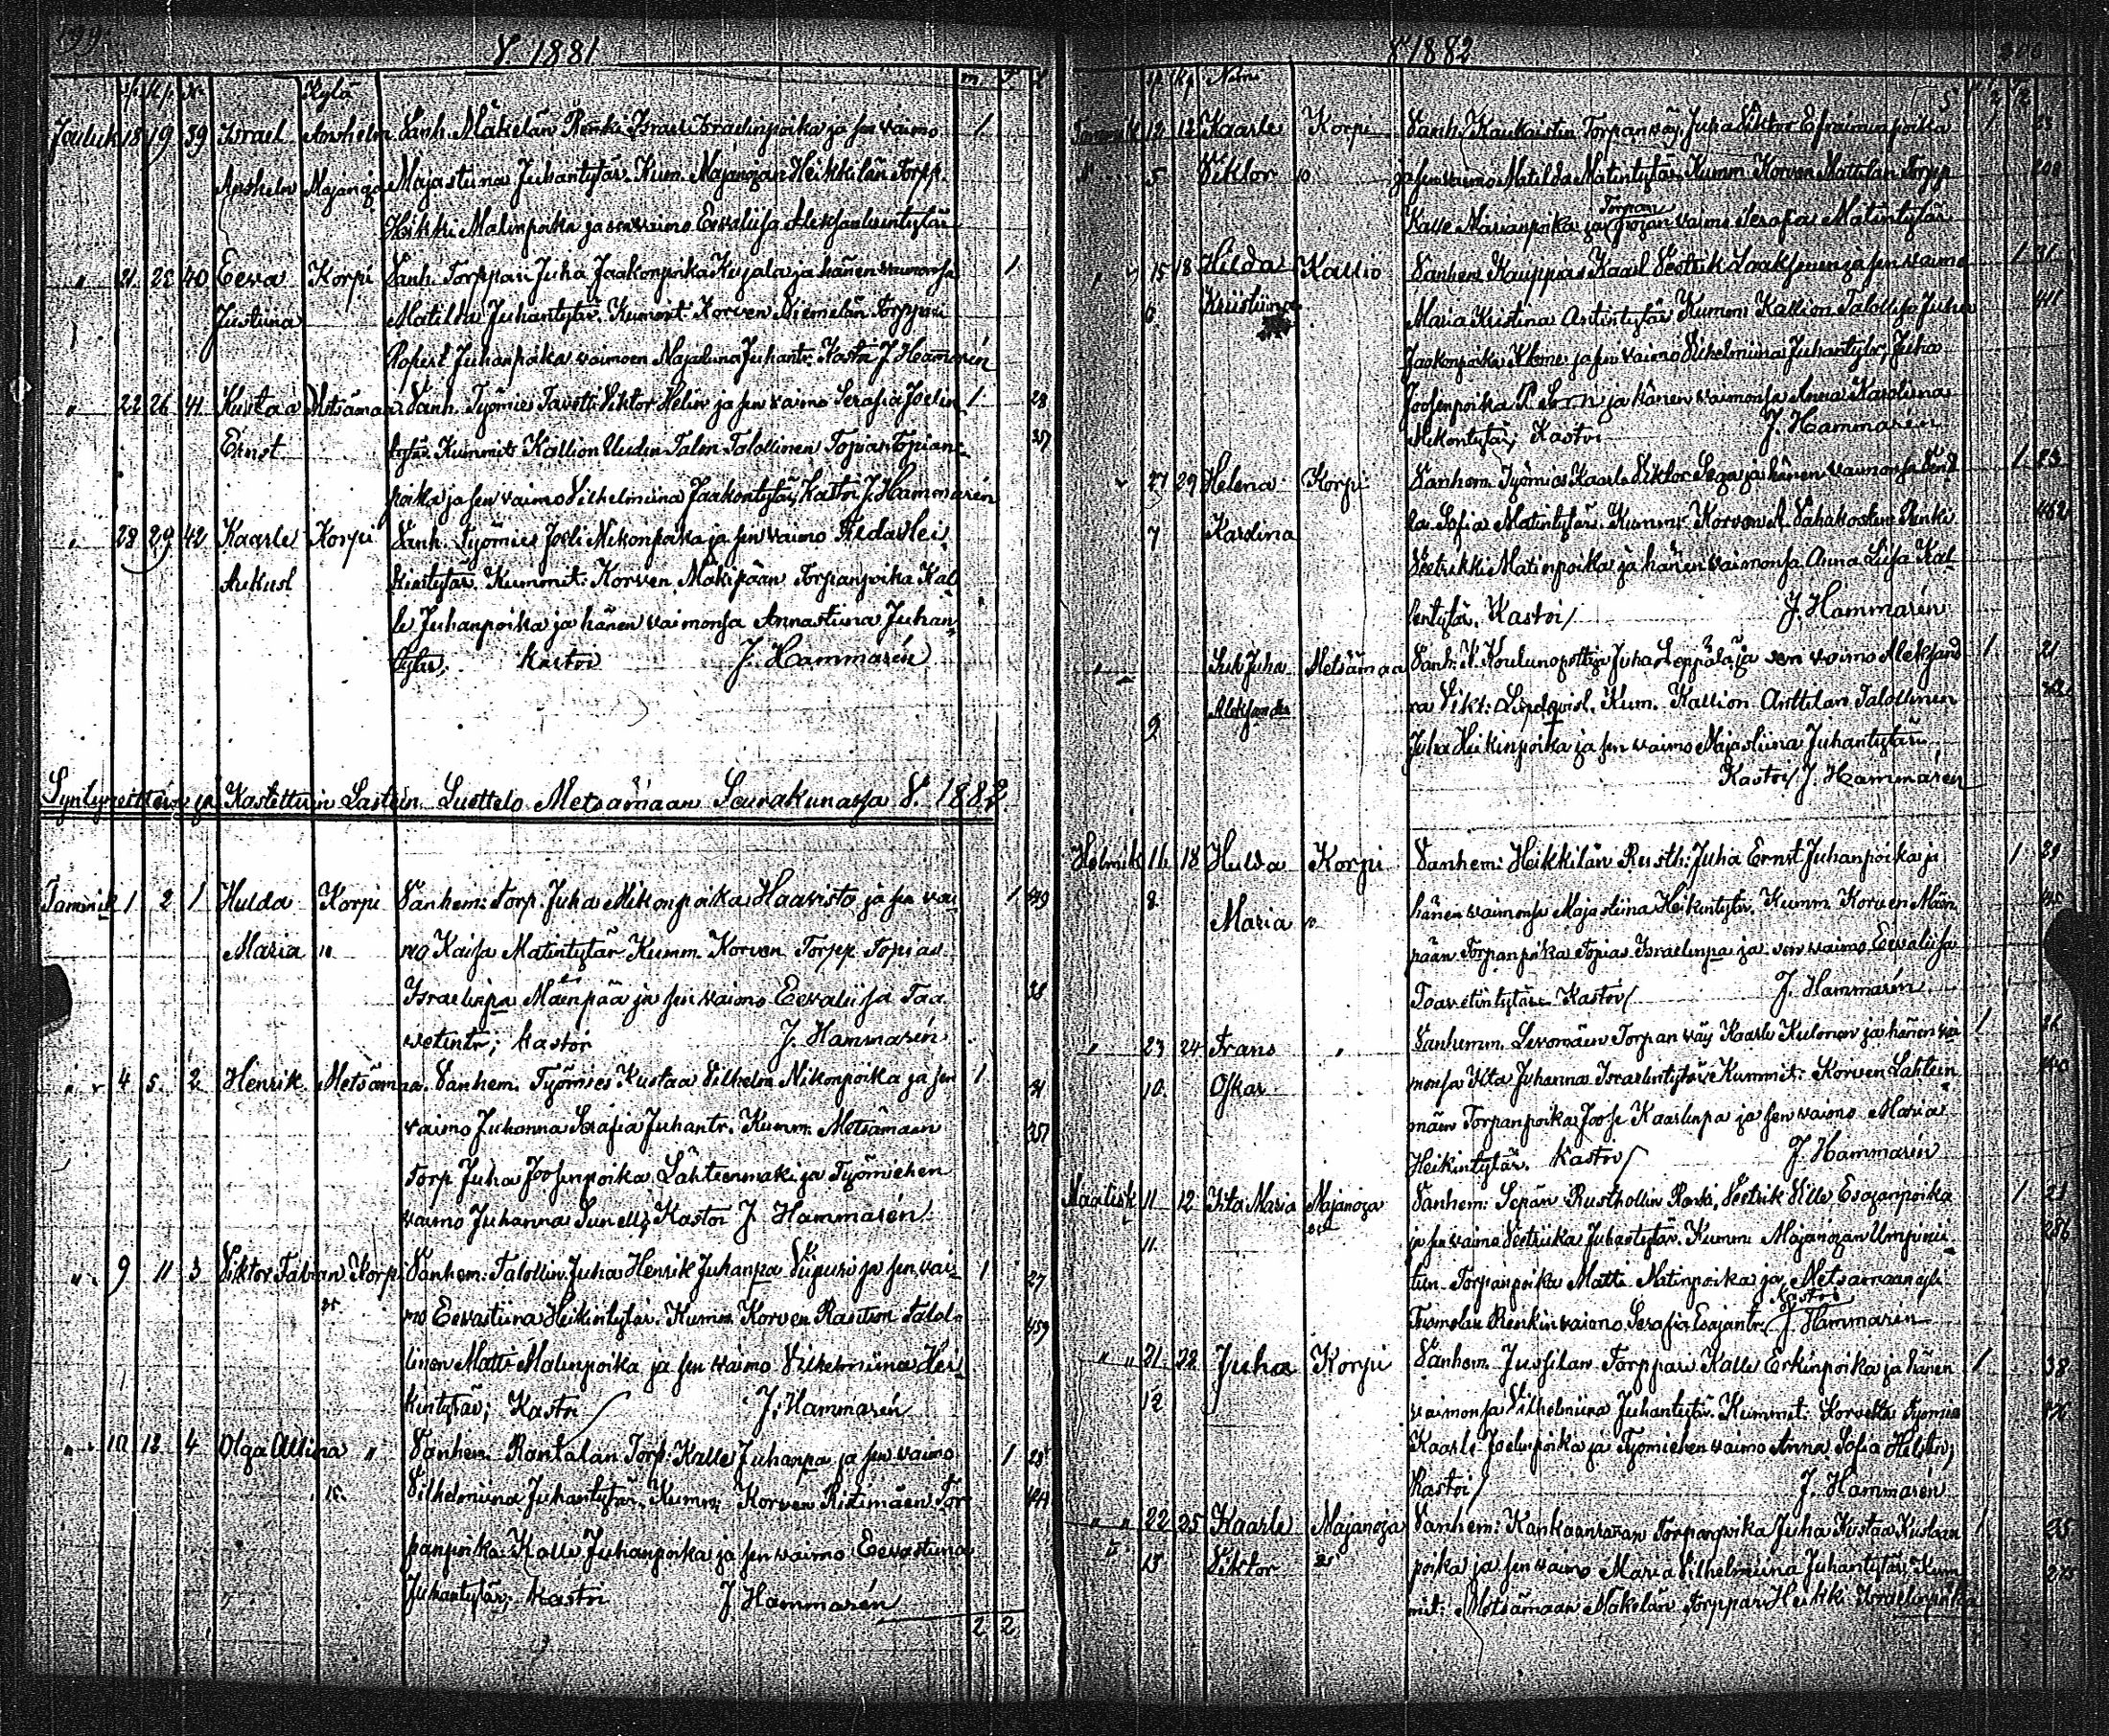 199
V. 1881
sp. Kp. No Kylä m.
Jouluk 18 19 39 Israel Anshelm Vanh. Mäkelän Renki Israel Israelinpoika ja sen vaimo 1.
Anshelm Majanoja Majastiina Juhantytär. Kum. Majanojan Heikkilän Torpp.
Heikki Matinpoika ja sen vaimo Eevaliisa Aleksanterintytär
" 21. 25 40 Eeva Korpi Vanh. Torppari Juha Jaakonpoika Kujala ja hänen vaimonsa 1
Justiina Matilda Juhantytär. Kummit: Korven Niemelän Torppari
Juhanpoika vaimoen Majastiina Juhantr. Kastoi J. Hammarén
" 22 26 41 Kustaa Metsämaa Vanh. Työmies Tavetti Viktor Helin ja sen vaimo Serafia Joelin 1. 28
Ernst tytär. Kummit: Kallion Uuden Talon Talollinen Topias Topian- 357
poika ja sen vaimo Vilhelmiina Jaakontytär, Kastoi J. Hammarén
" 28 29 42 Kaarle Korpi Vanh. Työmies Joeli Mikonpoika ja sen vaimo
Aukust kintytär. Kummit: Korven Mäkipään Torpanpoika Kal-
le Juhanpoika ja hänen vaimonsa Annastiina Juhan-
tytär, Kastoi J. Hammarén
Syntyneitten ja Kastettuin Lasten Luettelo Metsämaan Seurakunassa V. 1882
Tammik 1 2 1 Hulda Korpi Vanhem: Torp. Juha Mikonpoika Haavisto ja sen vai- 1 49
Maria 10 mo Kaisa Matintytär Kumm. Korven Torpp. Topias
Israelinpa Mäenpää ja sen vaimo Eevaliisa Taa 38
vetintr; Kastoi J. Hammarén
" " 4 5. 2 Henrik Metsämaa. Vanhem. Työmies Kustaa Vilhelm Nikonpoika ja sen 1 31
vaimo Juhanna Serafia Juhantr. Kumm. Metsämaan 357
Torp Juha Joosenpoika Lähteenmäki ja Työmiehen
vaimo Juhanna Sunell; Kastoi J. Hammarén
" . 9 11 3 Viktor Fabian Korpi Vanhem: Talollin. Juha Henrik Juhanpa Viipuri ja sen vai- 1 27
mo Eevastiina Heikintytär. Kumm. Korven Talol- 459
linen Matti Matinpoika ja sen vaimo Vilhelmiina Hei-
kintytär; Kastoi J. Hammarén
" . 12 4 Olga Alina " Vanhem. Rantalan Torp: Kalle Juhanpa ja sen vaimo 1 28
Vilhelmiina Juhantytär. Kumm: Korven Ristimäen Tor-
panpoika Kalle Juhanpoika ja sen vaimo Eevastiina
Juhantytär; Kastoi J. Hammarén
2 2
V 1882 200
sp. Kp. Nimi
Tammik 12 Kaarle Korpi Vanh. Torpan väy. Juha Viktor Efraiminpoika 23
5 Viktor 10 ja sen vaimo Matilda Matintytär. Kumm. Korven Mattilan Torpp.
Kalle Marianpoika ja Torpan vaimo Serafia Matintytär
" " 15 18 Hilda Kallio Vanhem. Kauppias Kaarl Veetrik Laaksonen ja sen vaimo 1 31
6 Kristiina Maria Kristina Antintytär Kumm: Kallion Talollis. Juha
Jaakonpoika ja sen vaimo Vilhelmiina Juhantytär, Juha
Joosenpoika ja hänen vaimonsa Anna Karoliina
Mikontytär; Kastoi J. Hammarén
" 27 29 Helena Korpi Vanhem. Työmies Kaarle Viktor ja hänen vaimonsa 1 23
7 Karolina Sofia Matintytär. Kumm: Korven Renki 462
Veetrikki Matinpoika ja hänen vaimonsa Anna Liisa Kal-
lentytär. Kastoi J. Hammarén
" Juha Metsämaa Vanh: Koulunopettaja Juha Leppälä ja sen vaimo Aleksand- 1 21
9 Aleksander ra Vikt: Lindqvist. Kum. Kallion Anttilan Talollinen
Juha Heikinpoika ja sen vaimo Majastiina Juhantytär;
Kastoi J. Hammarén
Helmik 16 18 Hulda Korpi Vanhem: Heikkilän Rusth: Juha Ernst Juhanpoika ja 1 39
8. Maria 10 hänen vaimonsa Majastiina Heikintytär. Kumm. Korven Mäen-
pään Torpanpoika Topias Israelinpa ja sen vaimo Eevaliisa
Taavetintytär. Kastoi J. Hammarén
" 23 24 Frans " Vanhemm. Torpan väy Kaarle Kulonen ja hänen vai- 1
10. Oskar monsa Iita Juhanna Israelintytär. Kummit: Korven Lähteen
mäen Torpanpoika Joose Kaarlinpa ja sen vaimo Maria
Heikintytär. Kastoi J. Hammarén
Maalisk 11 12 Iita Maria Majanoja Vanhem: Sepän Rusthollin Renki, Veetrik Ville Esajanpoika 1 21
11. ja sen vaimo Veetriika Juhantytär. Kumm: Majanojan 256
Torpanpoika Matti Matinpoika ja Metsämaan
Renkin vaimo Serafia Esajantr. Kastoi J. Hammarén
" " 21 22 Juha Korpi Vanhem. Jussilan Torppari Kalle Erkinpoika ja hänen 1 38
12 vaimonsa Vilhelmiina Juhantytär. Kummit: Korvelta Työmies
Kaarle Joelinpoika ja Työmiehen vaimo Anna Sofia
Kastoi J. Hammarén
" " 22 25 Kaarle Majanoja Vanhem: Torpanpoika Juha Kustaa Kustaan 1 25
13 Viktor poika ja sen vaimo Maria Vilhelmiina Juhantytär, Kum- 275
mit: Metsämaan Mäkelän Torppari Heikki Israelinpoika